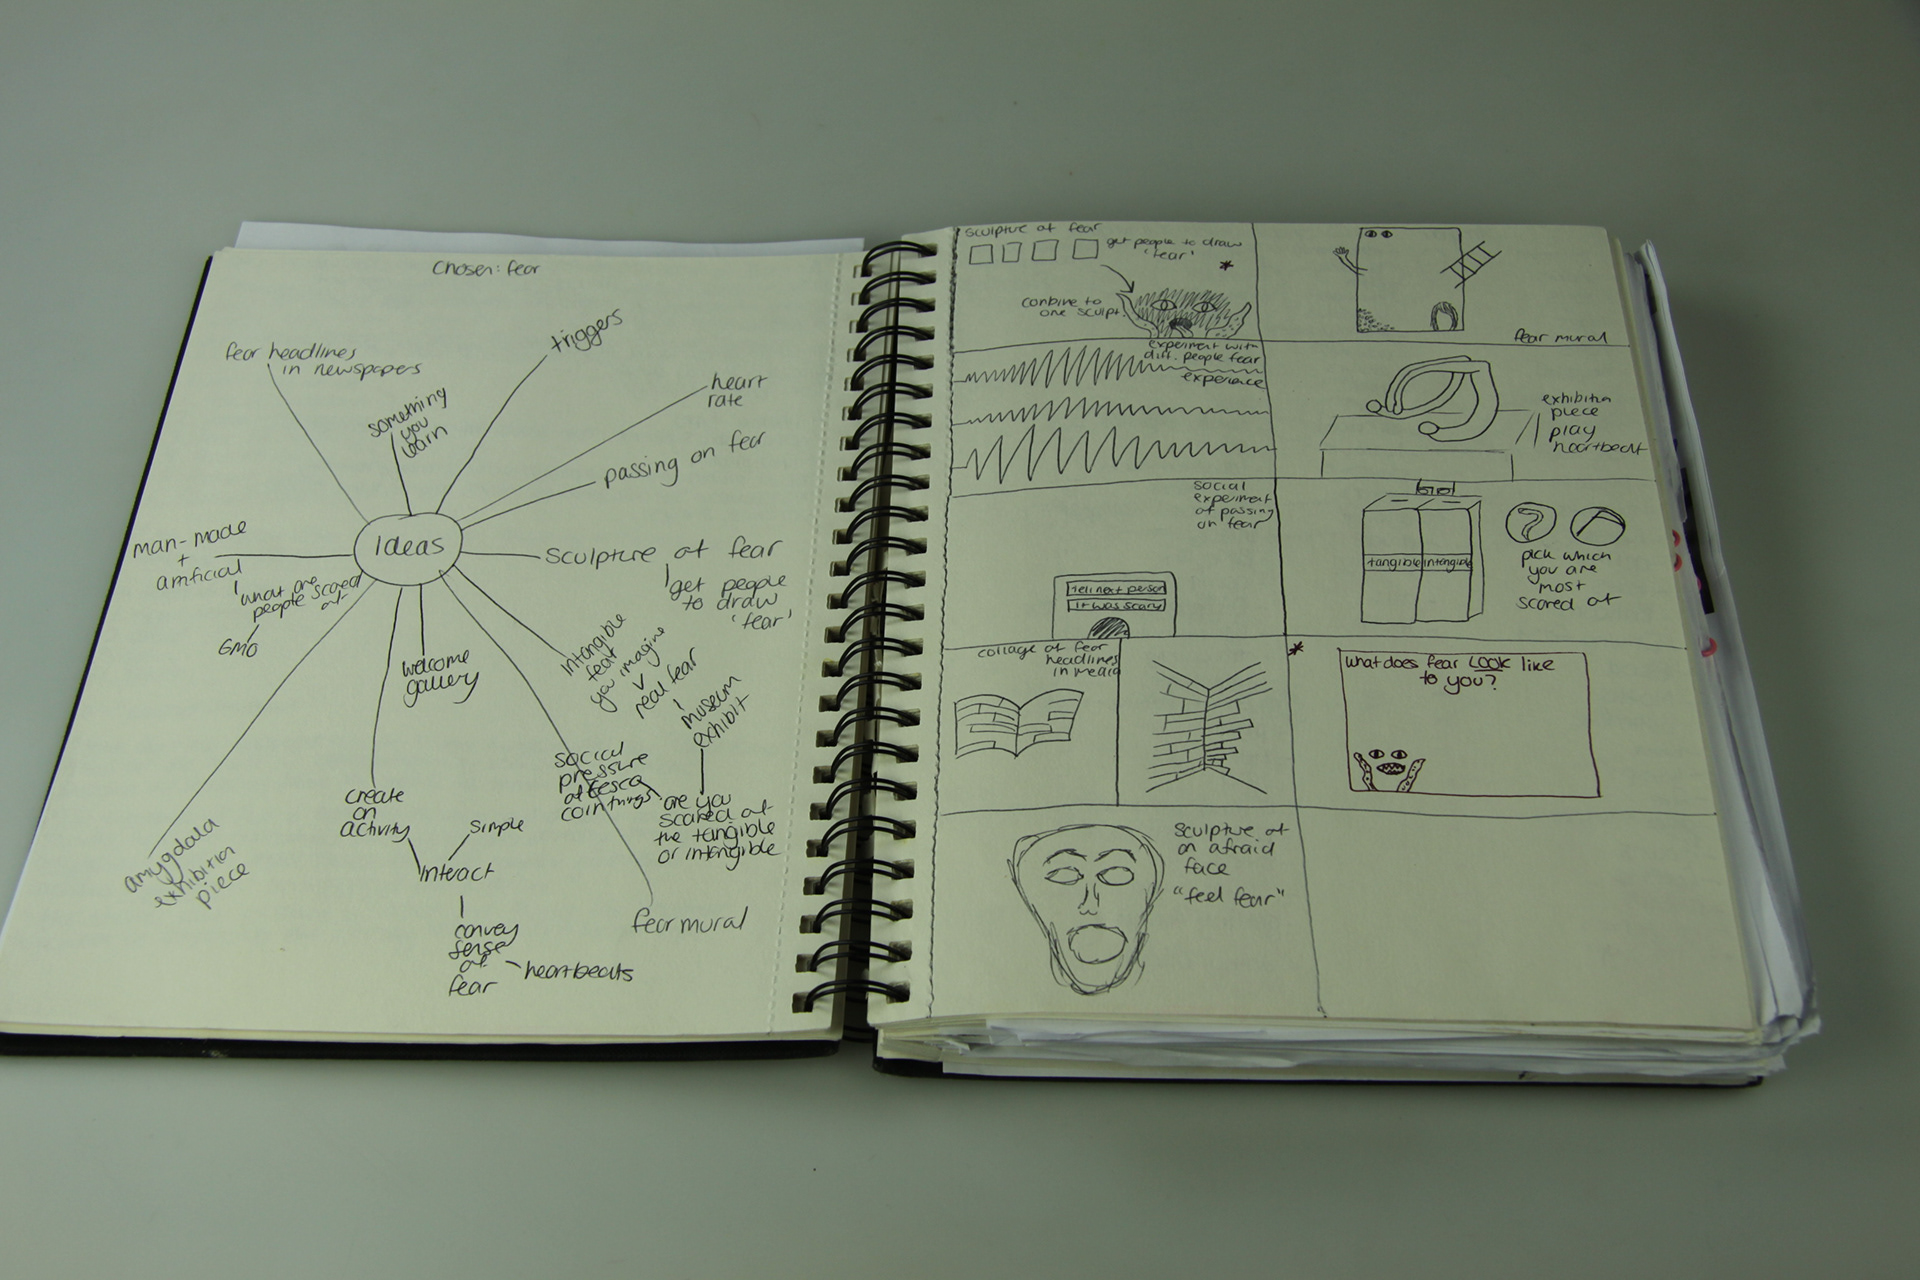 Chosen: fear
fear headlines
in newspapers
something
you
learn
triggers
heart
rate
passing on fear
man-made
+
artificial
what are
people scared
of
GMO
Ideas
sculpture of fear
get people
to draw
'fear'
welcome
gallery
Intangible
fear
you imagine
real fear
museum
exhibit
social
pressure
of tesco
coin things
are you
scared of
the tangible
or intangible
create
an
activity
simple
interact
convey
sense
of
fear
heartbeats
amygdala
exhibition
piece
fear mural
sculpture of fear
get people to draw
'fear'
*
combine to
one sculpt.
fear mural
experiment with
diff. people fear
experience
exhibition
piece
play
heartbeat
social
experiment
of passing
on fear
tell next person
it was scary
tangible
intangible
pick which
you are
most
scared of
collage of fear
headlines
in media
*
what does fear LOOK like
to you?
sculpture of
an afraid
face
"feel fear"